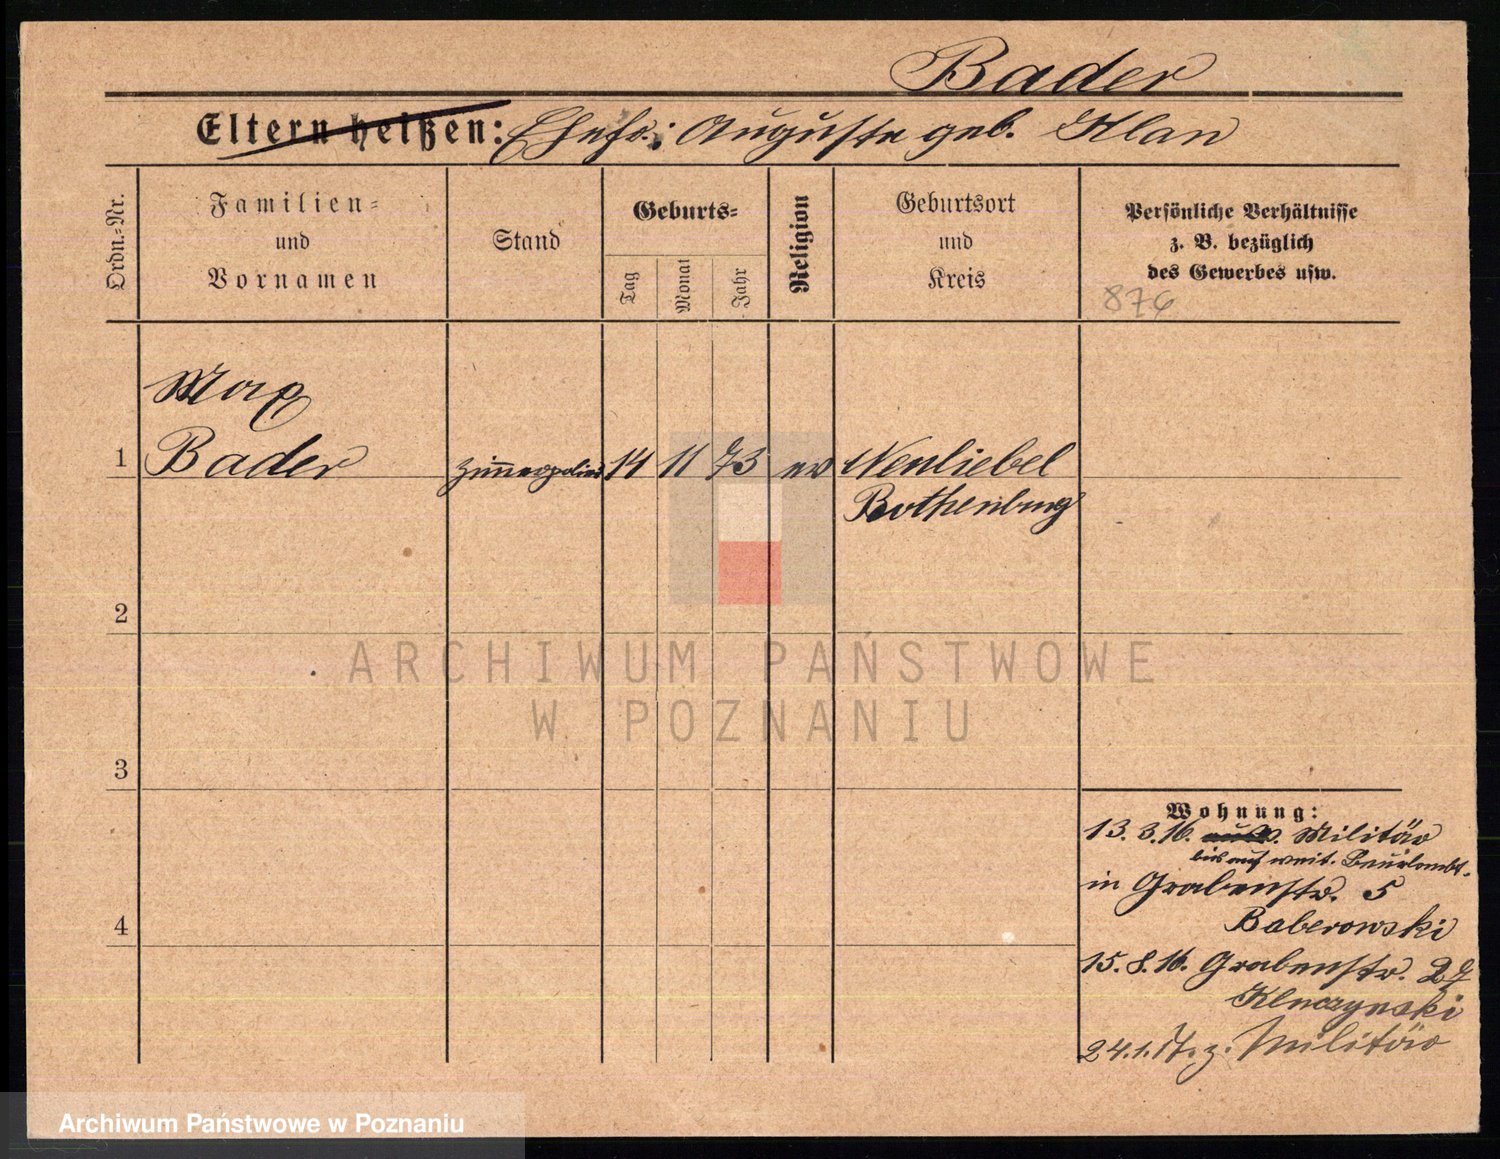 Bader
Eltern heißen: Ehefr.: Auguste geb. Klan
Ordn.-Nr.
Familien-
und
Vornamen
Stand
Geburts-
Tag
Monat
Jahr
Religion
Geburtsort
und
Kreis
Persönliche Verhältnisse
z. B. bezüglich
des Gewerbes usw.
876
Max
1 Bader Zimmerpolier 14 11 73 ev Neuliebel
Rothenburg
2
ARCHIWUM PAŃSTWOWE
W POZNANIU
3
Wohnung:
13. 3. 16. Militär
bis auf weit. Beurlaubt.
in Grabenstr. 5
4
Baberowski
15. 8. 16. Grabenstr. 27
Kluczynski
24. 1. 17. z. Militär
Archiwum Państwowe w Poznaniu